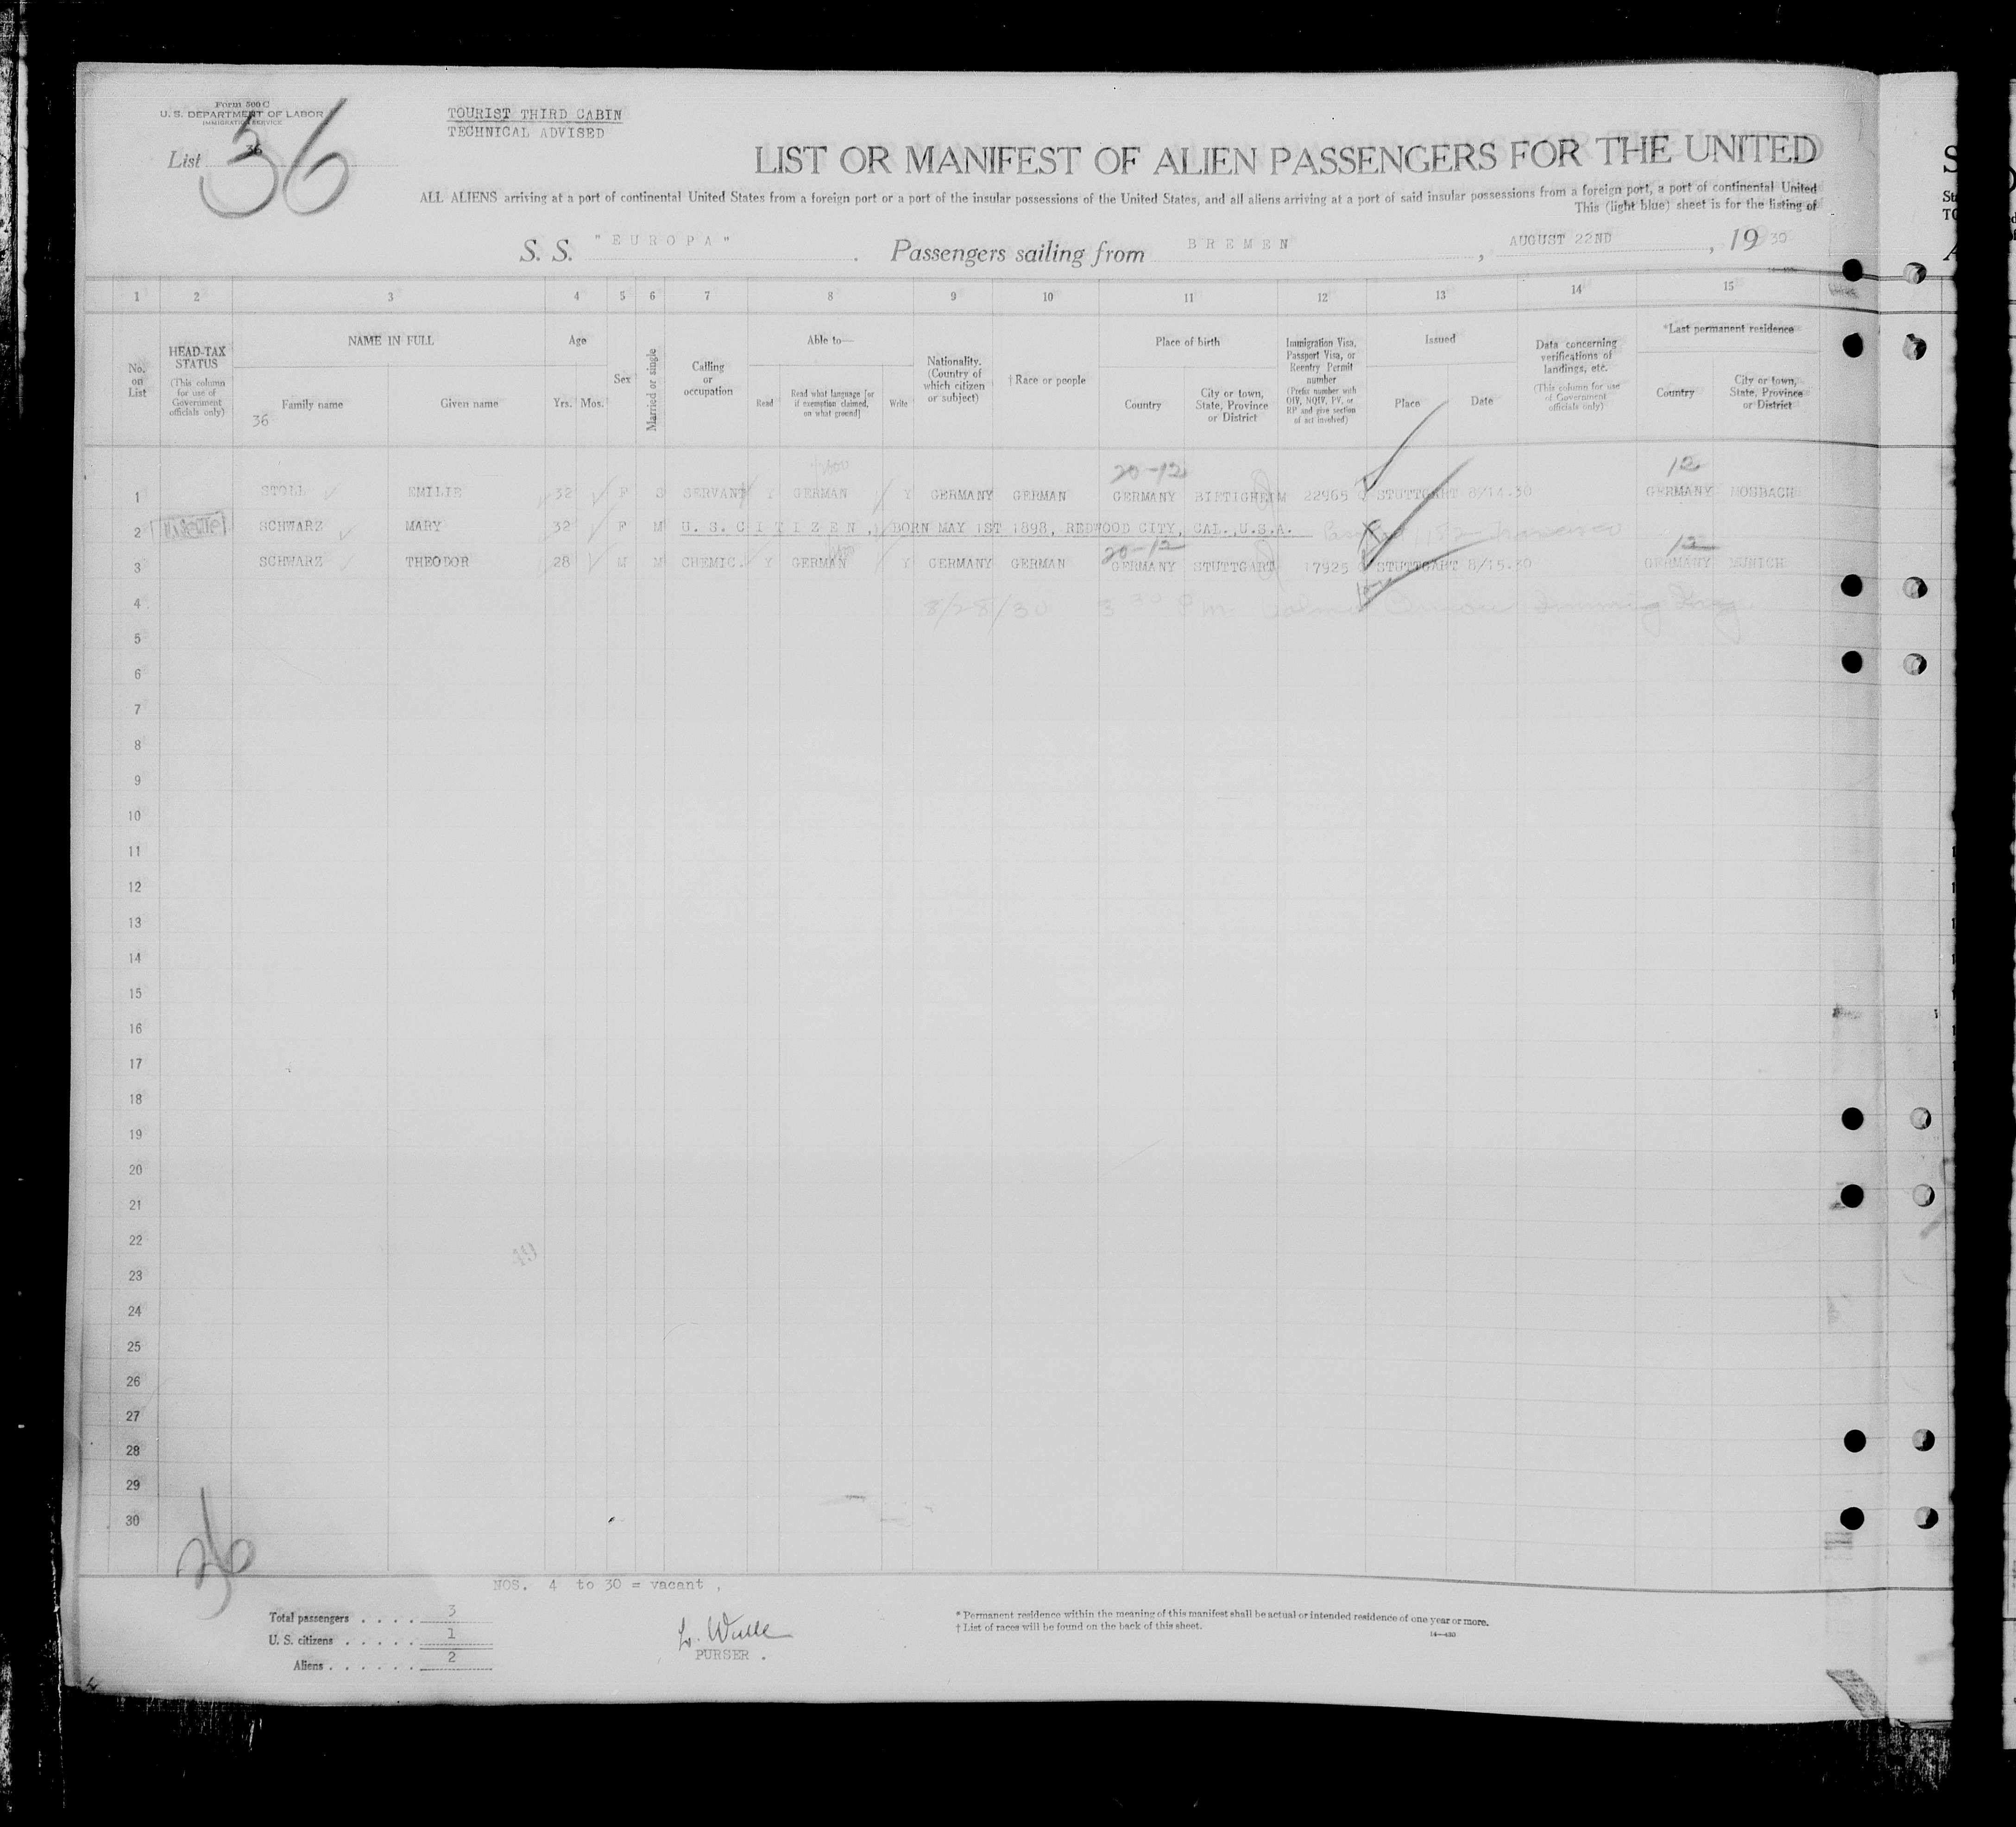 Form 500 C
U. S. DEPARTMENT OF LABOR
IMMIGRATION SERVICE
List 36
36
TOURIST THIRD CABIN
TECHNICAL ADVISED
LIST OR MANIFEST OF ALIEN PASSENGERS FOR THE UNITED
ALL ALIENS arriving at a port of continental United States from a foreign port or a port of the insular possessions of the United States, and all aliens arriving at a port of said insular possessions from a foreign port, a port of continental United
This (light blue) sheet is for the listing of
S. S. "EUROPA" . Passengers sailing from BREMEN , AUGUST 22ND , 19 30
1 2 3 4 5 6 7 8 9 10 11 12 13 14 15
No. on List
HEAD-TAX STATUS
(This column for use of Government officials only)
NAME IN FULL
Family name
Given name
36
Age
Yrs. Mos.
Sex
Married or single
Calling or occupation
Able to—
Read
Read what language [or if exemption claimed, on what ground]
Write
Nationality. (Country of which citizen or subject)
† Race or people
Place of birth
Country
City or town, State, Province or District
Immigration Visa, Passport Visa, or Reentry Permit number
(Prefix number with QIV, NQIV, PV, or RP and give section of act involved)
Issued
Place
Date
Data concerning verifications of landings, etc.
(This column for use of Government officials only)
*Last permanent residence
Country
City or town, State, Province or District
20-12
12
1 STOLL EMILIE 32 F S SERVANT Y GERMAN Y GERMANY GERMAN GERMANY BIETIGHEIM 22965 STUTTGART 8/14.30 GERMANY MOSBACH
2 SCHWARZ MARY 32 F M U. S. CITIZEN, BORN MAY 1ST 1898, REDWOOD CITY, CAL., U.S.A.
20-12
12
3 SCHWARZ THEODOR 28 M M CHEMIC. Y GERMAN Y GERMANY GERMAN GERMANY STUTTGART 17925 STUTTGART 8/15.30 GERMANY MUNICH
4 8/28/30 3 30 Pm
5
6
7
8
9
10
11
12
13
14
15
16
17
18
19
20
21
22
23
24
25
26
27
28
29
30
36
NOS. 4 to 30 = vacant ,
Total passengers . . . . 3
U. S. citizens . . . . . 1
Aliens . . . . . . 2
PURSER .
* Permanent residence within the meaning of this manifest shall be actual or intended residence of one year or more.
† List of races will be found on the back of this sheet.
14—430